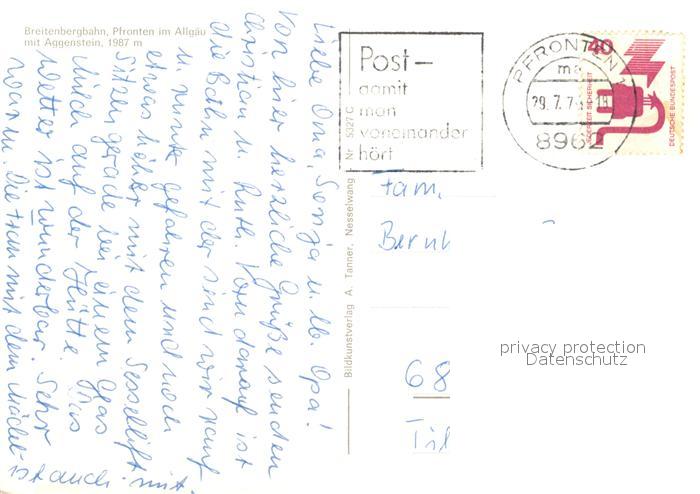 Breitenbergbahn, Pfronten im Allgäu
mit Aggenstein, 1987 m
Liebe Oma, Sonja u. lb. Opa!
Von hier herzliche Grüße senden
Christian u. Ruth. Vorn darauf ist
die Bahn mit der sind wir rauf
u. runter gefahren und noch
etwas höher mit dem Sessellift
Sitzen gerade bei einem Glas
Milch auf der Hütte. Das
Wetter ist wunderbar. Sehr
warm. Die Frau mit dem
ist auch mit.
Bildkunstverlag A. Tanner, Nesselwang
Nr. 5327 C
Post-
damit
man
voneinander
hört
PFRONTEN 1
29. 7. 7
8962
40
JEDERZEIT SICHERHEIT
DEUTSCHE BUNDESPOST
Fam.
Bernh
68
privacy protection
Datenschutz